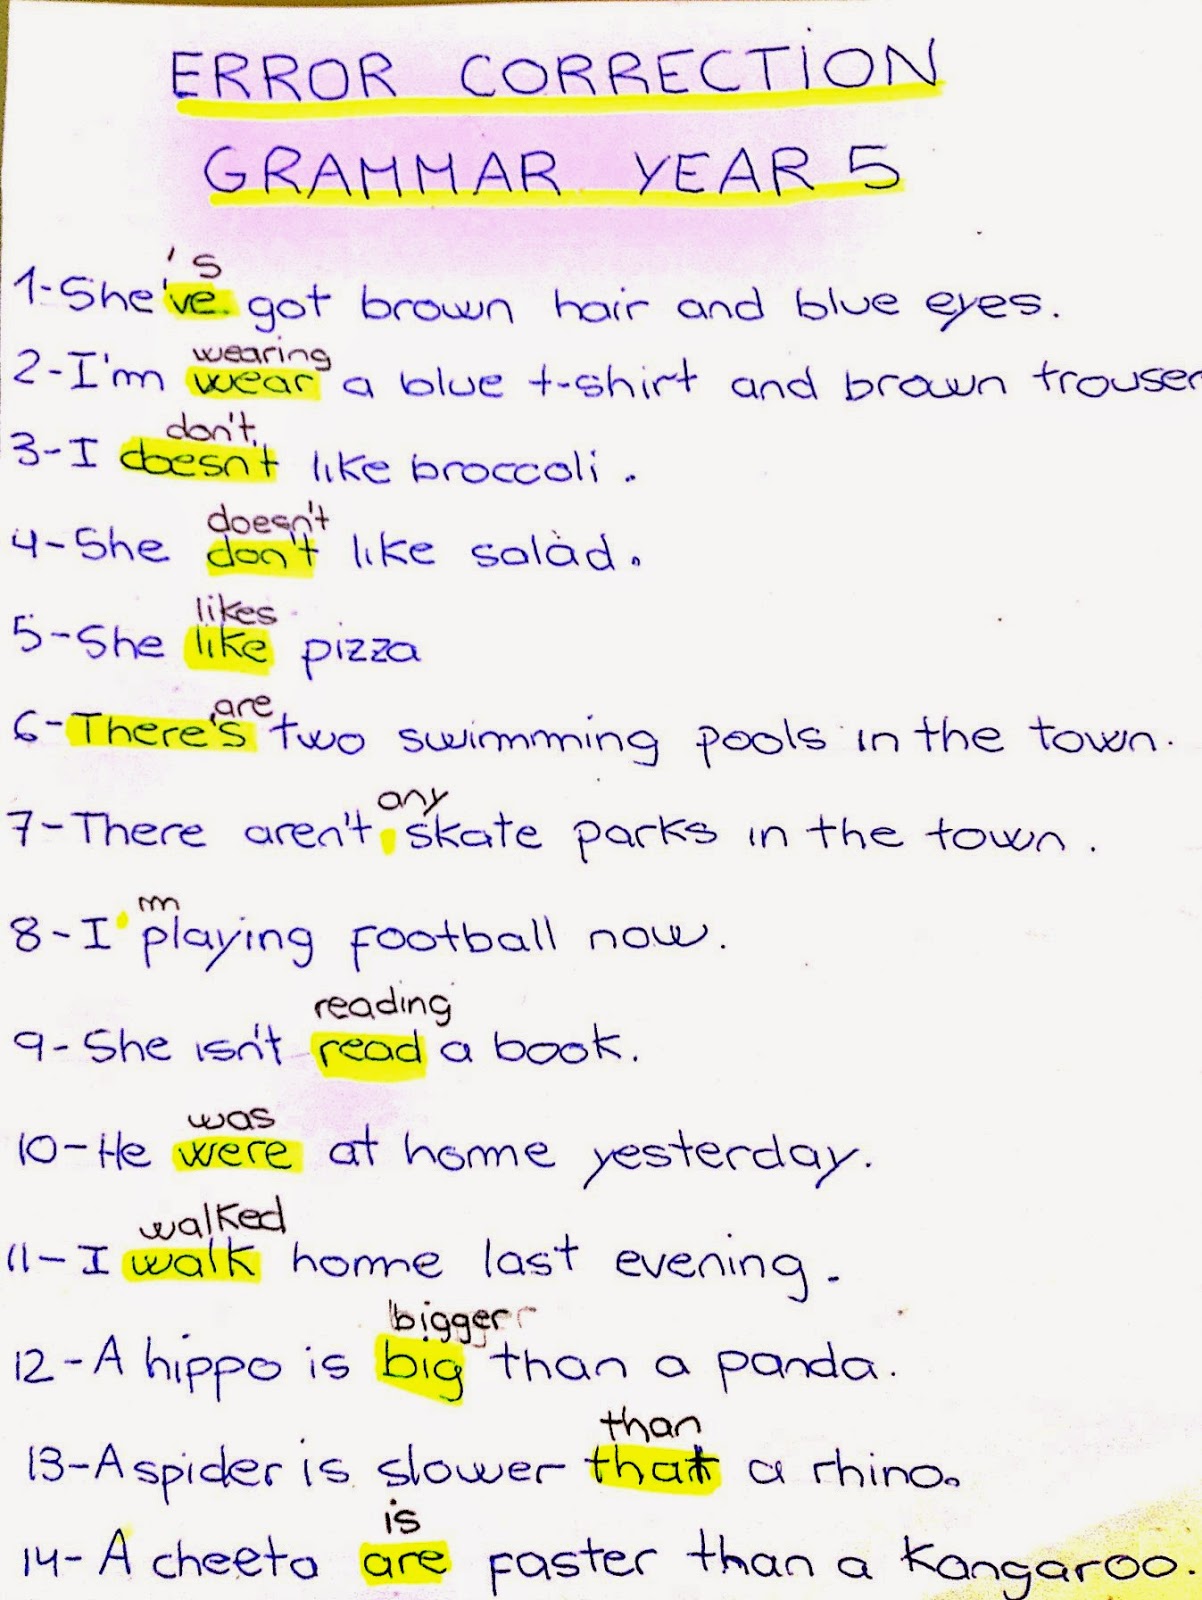 ERROR CORRECTION
GRAMMAR YEAR 5
's
1-She've got brown hair and blue eyes.
wearing
2-I'm wear a blue t-shirt and brown trouser
don't
3-I doesn't like broccoli.
doesn't
4-She don't like salad.
likes
5-She like pizza
are
6-There's two swimming pools in the town.
any
7-There aren't skate parks in the town.
m
8-I playing football now.
reading
9-She isn't read a book.
was
10-He were at home yesterday.
walked
11-I walk home last evening.
bigger
12-A hippo is big than a panda.
than
13-A spider is slower that a rhino.
is
14-A cheeta are faster than a Kangaroo.